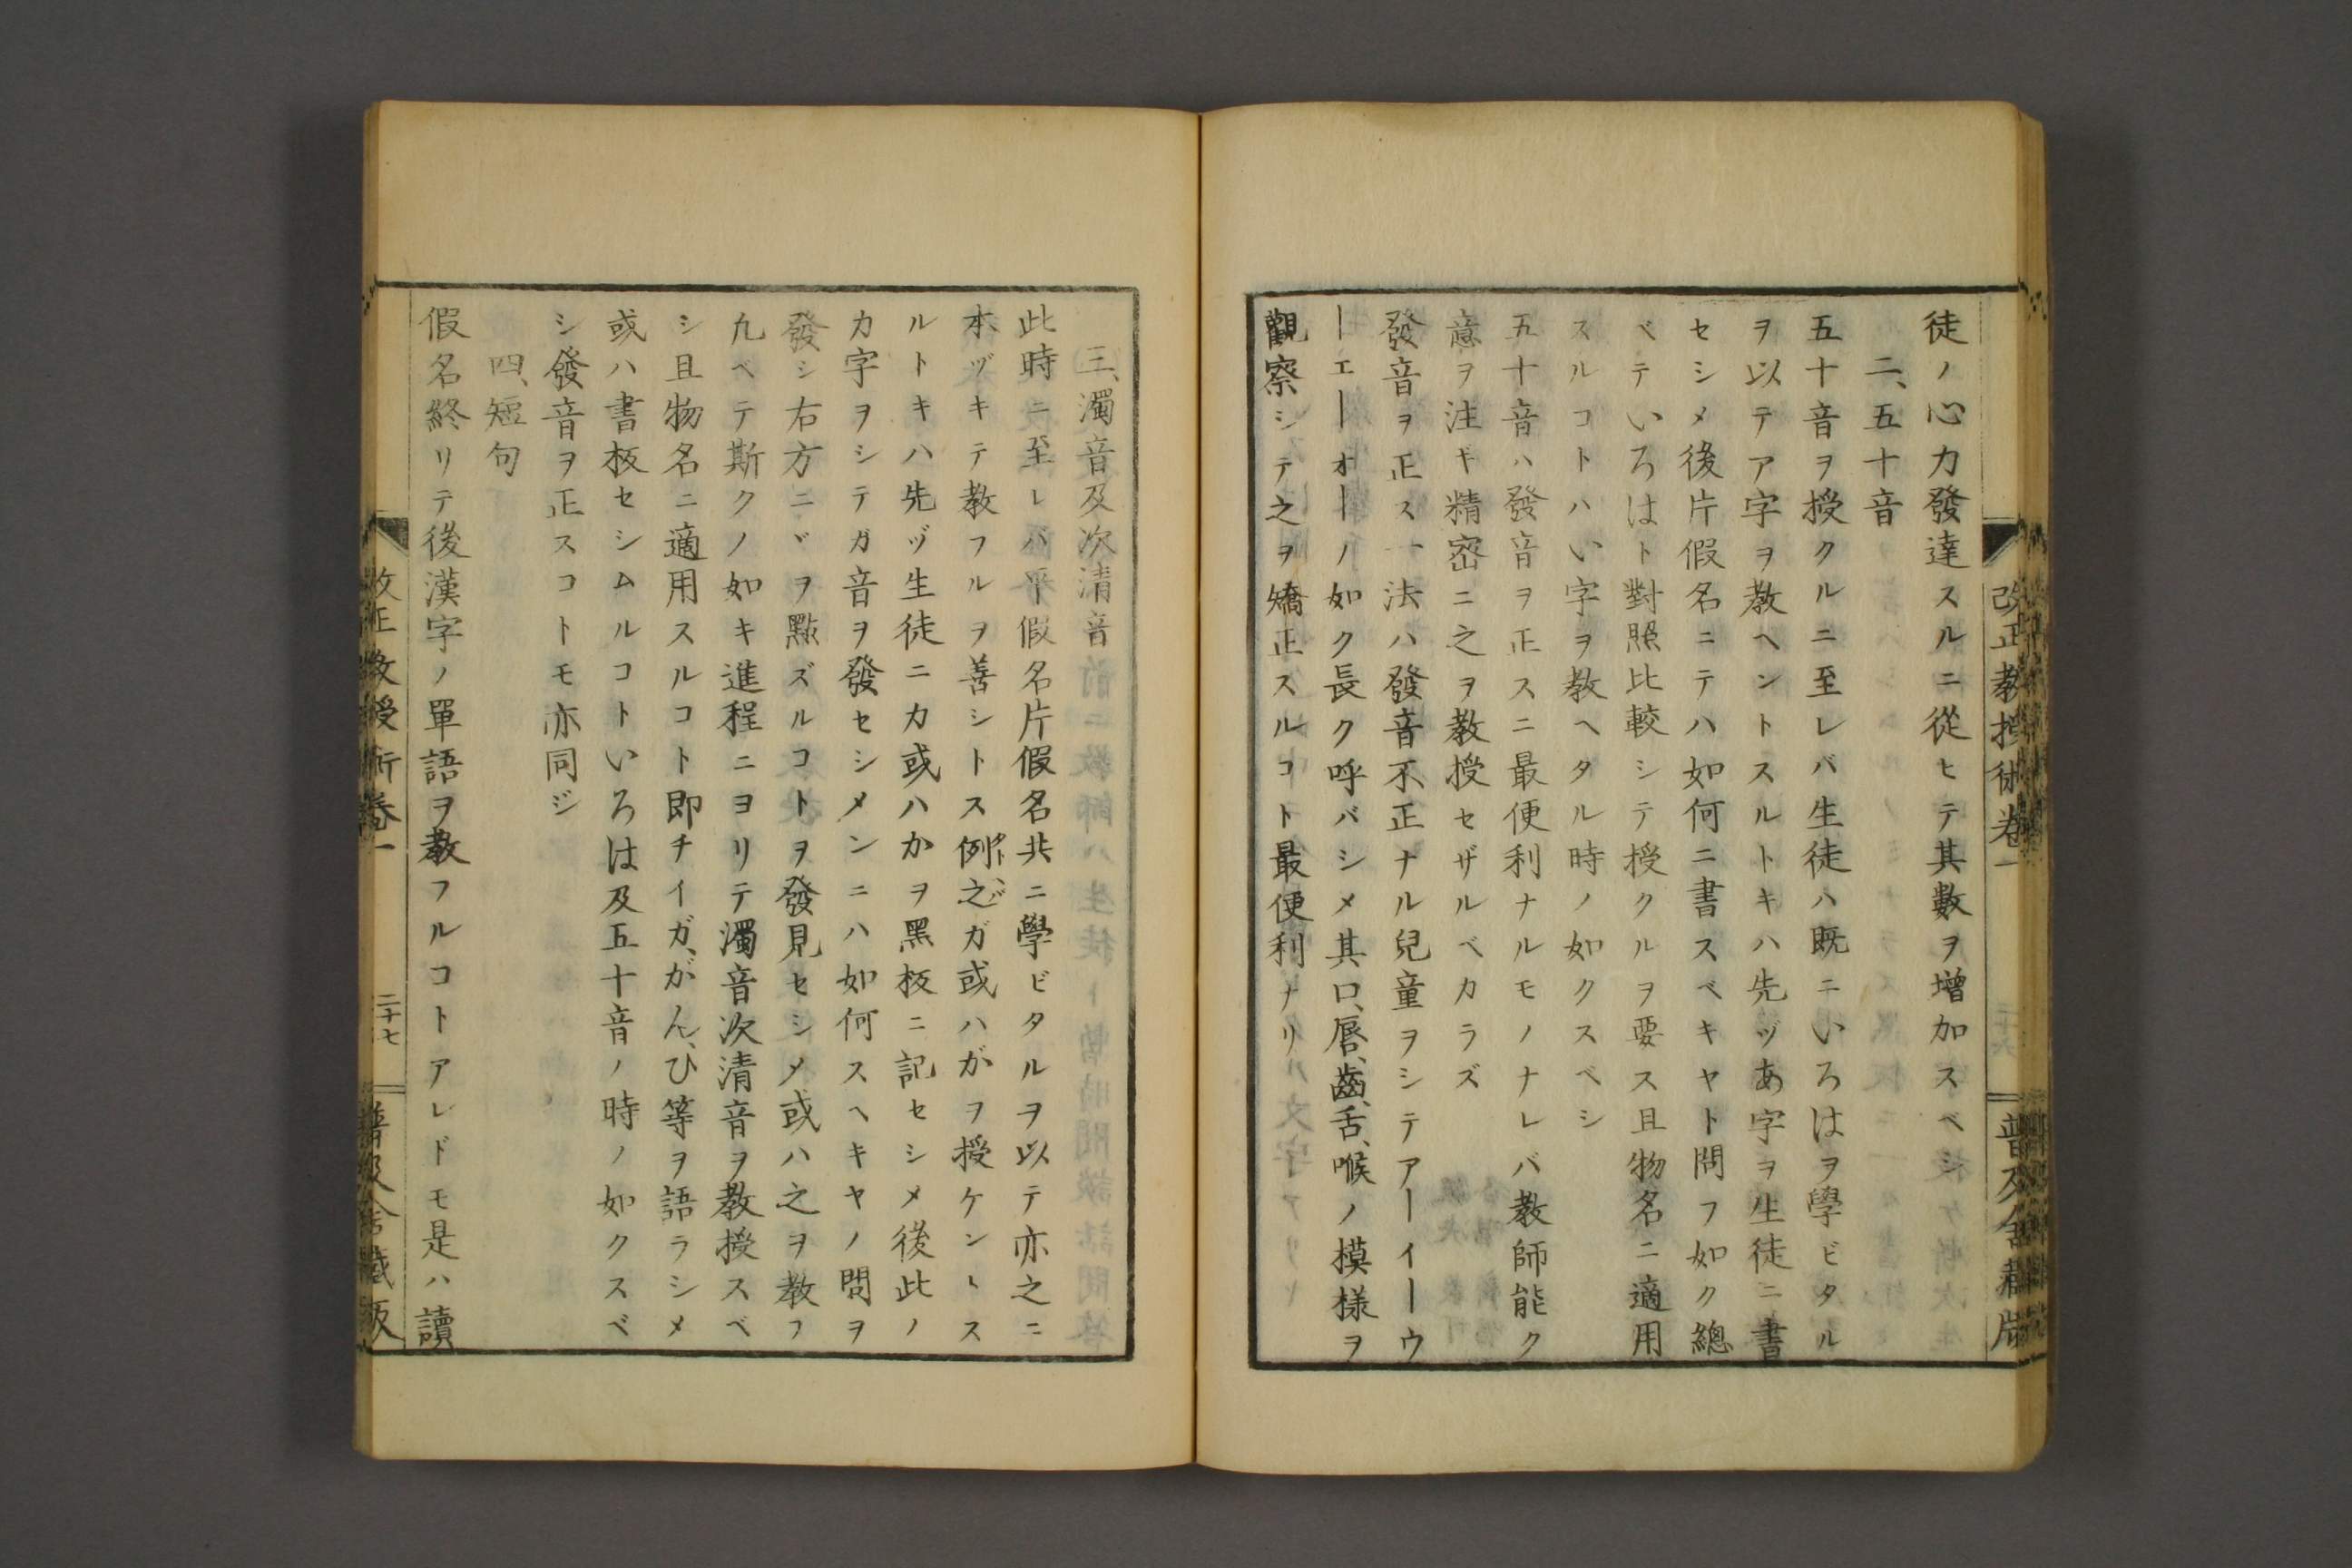 改正教授術卷一
普及舍藏版
徒ノ心力發達スルニ從ヒテ其數ヲ增加スベシ
二、五十音
五十音ヲ授クルニ至レバ生徒ハ既ニいろはヲ學ビタル
ヲ以テア字ヲ教ヘントスルトキハ先ヅあ字ヲ生徒ニ書
セシメ後片假名ニテハ如何ニ書スベキヤト問フ如ク總
ベテいろはト對照比較シテ授クルヲ要ス且物名ニ適用
スルコトハい字ヲ教ヘタル時ノ如クスベシ
五十音ハ發音ヲ正スニ最便利ナルモノナレバ教師能ク
意ヲ注ギ精密ニ之ヲ教授セザルベカラズ
發音ヲ正ス一法ハ發音不正ナル兒童ヲシテアーイーウ
ーエーオーノ如ク長ク呼バシメ其口、唇、齒、舌、喉ノ模樣ヲ
觀察シテ之ヲ矯正スルコト最便利ナリ
三、濁音及次清音
此時ニ至レバ平假名片假名共ニ學ビタルヲ以テ亦之ニ
本ヅキテ教フルヲ善シトス例之ガ或ハがヲ授ケントス
ルトキハ先ヅ生徒ニカ或ハかヲ黑板ニ記セシメ後此ノ
カ字ヲシテガ音ヲ發セシメンニハ如何スヘキヤノ問ヲ
發シ右方ニ゛ヲ點ズルコトヲ發見セシメ或ハ之ヲ教フ
凡ベテ斯クノ如キ進程ニヨリテ濁音次清音ヲ教授スベ
シ且物名ニ適用スルコト即チイガ、がん、ひ等ヲ語ラシメ
或ハ書板セシムルコトいろは及五十音ノ時ノ如クスベ
シ發音ヲ正スコトモ亦同ジ
四、短句
假名終リテ後漢字ノ單語ヲ教フルコトアレドモ是ハ讀
改正教授術卷一
二十七
普及舍藏版